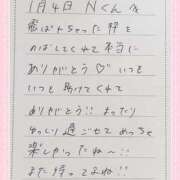 1月4日 Nくん
ちゃった枠を
のばしてくれて本当に
ありがとう♡いつも
いつも助けてくれて
ありがとう!!まったり
ゆっくり過ごせてめっちゃ
楽しかったね〜!!
また待っておるね!!